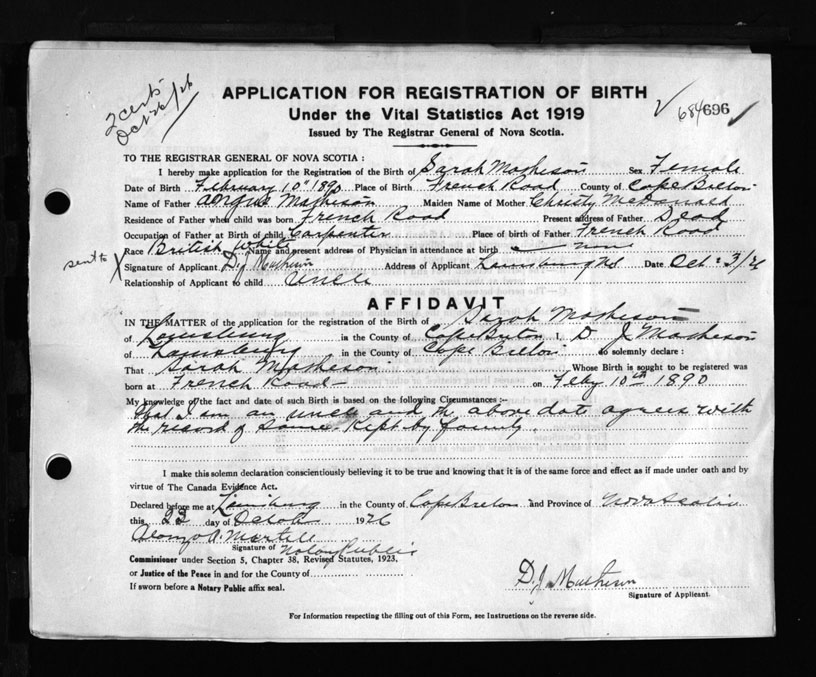 2 certs
Oct 26/26
APPLICATION FOR REGISTRATION OF BIRTH
684696
Under the Vital Statistics Act 1919
Issued by The Registrar General of Nova Scotia.
TO THE REGISTRAR GENERAL OF NOVA SCOTIA :
I hereby make application for the Registration of the Birth of Sarah Matheson Sex Female
Date of Birth February 10th 1890 Place of Birth French Road County of Cape Breton
Name of Father Angus Matheson Maiden Name of Mother Christy McDonald
Residence of Father when child was born French Road Present address of Father Dead
Occupation of Father at Birth of child Carpenter Place of birth of Father French Road
Race British White Name and present address of Physician in attendance at birth none
sent to X Signature of Applicant D. J. Matheson Address of Applicant Louisburg NS Date Oct 23/26
Relationship of Applicant to child Uncle
AFFIDAVIT
IN THE MATTER of the application for the registration of the Birth of Sarah Matheson
of Louisburg in the County of Cape Breton I, D J Matheson
of Louisburg in the County of Cape Breton do solemnly declare :
That Sarah Matheson Whose Birth is sought to be registered was
born at French Road on Feby 10th 1890
My knowledge of the fact and date of such Birth is based on the following Circumstances :-
that I am an uncle and the above date agrees with
the record of same kept by family.
I make this solemn declaration conscientiously believing it to be true and knowing that it is of the same force and effect as if made under oath and by
virtue of The Canada Evidence Act.
Declared before me at Louisburg in the County of Cape Breton and Province of Nova Scotia
this 23 day of October 1926
Alonzo A. Martell
Signature of Notary Public
Commissioner under Section 5, Chapter 38, Revised Statutes, 1923.
or Justice of the Peace in and for the County of
D. J. Matheson
If sworn before a Notary Public affix seal.
Signature of Applicant.
For Information respecting the filling out of this Form, see Instructions on the reverse side.